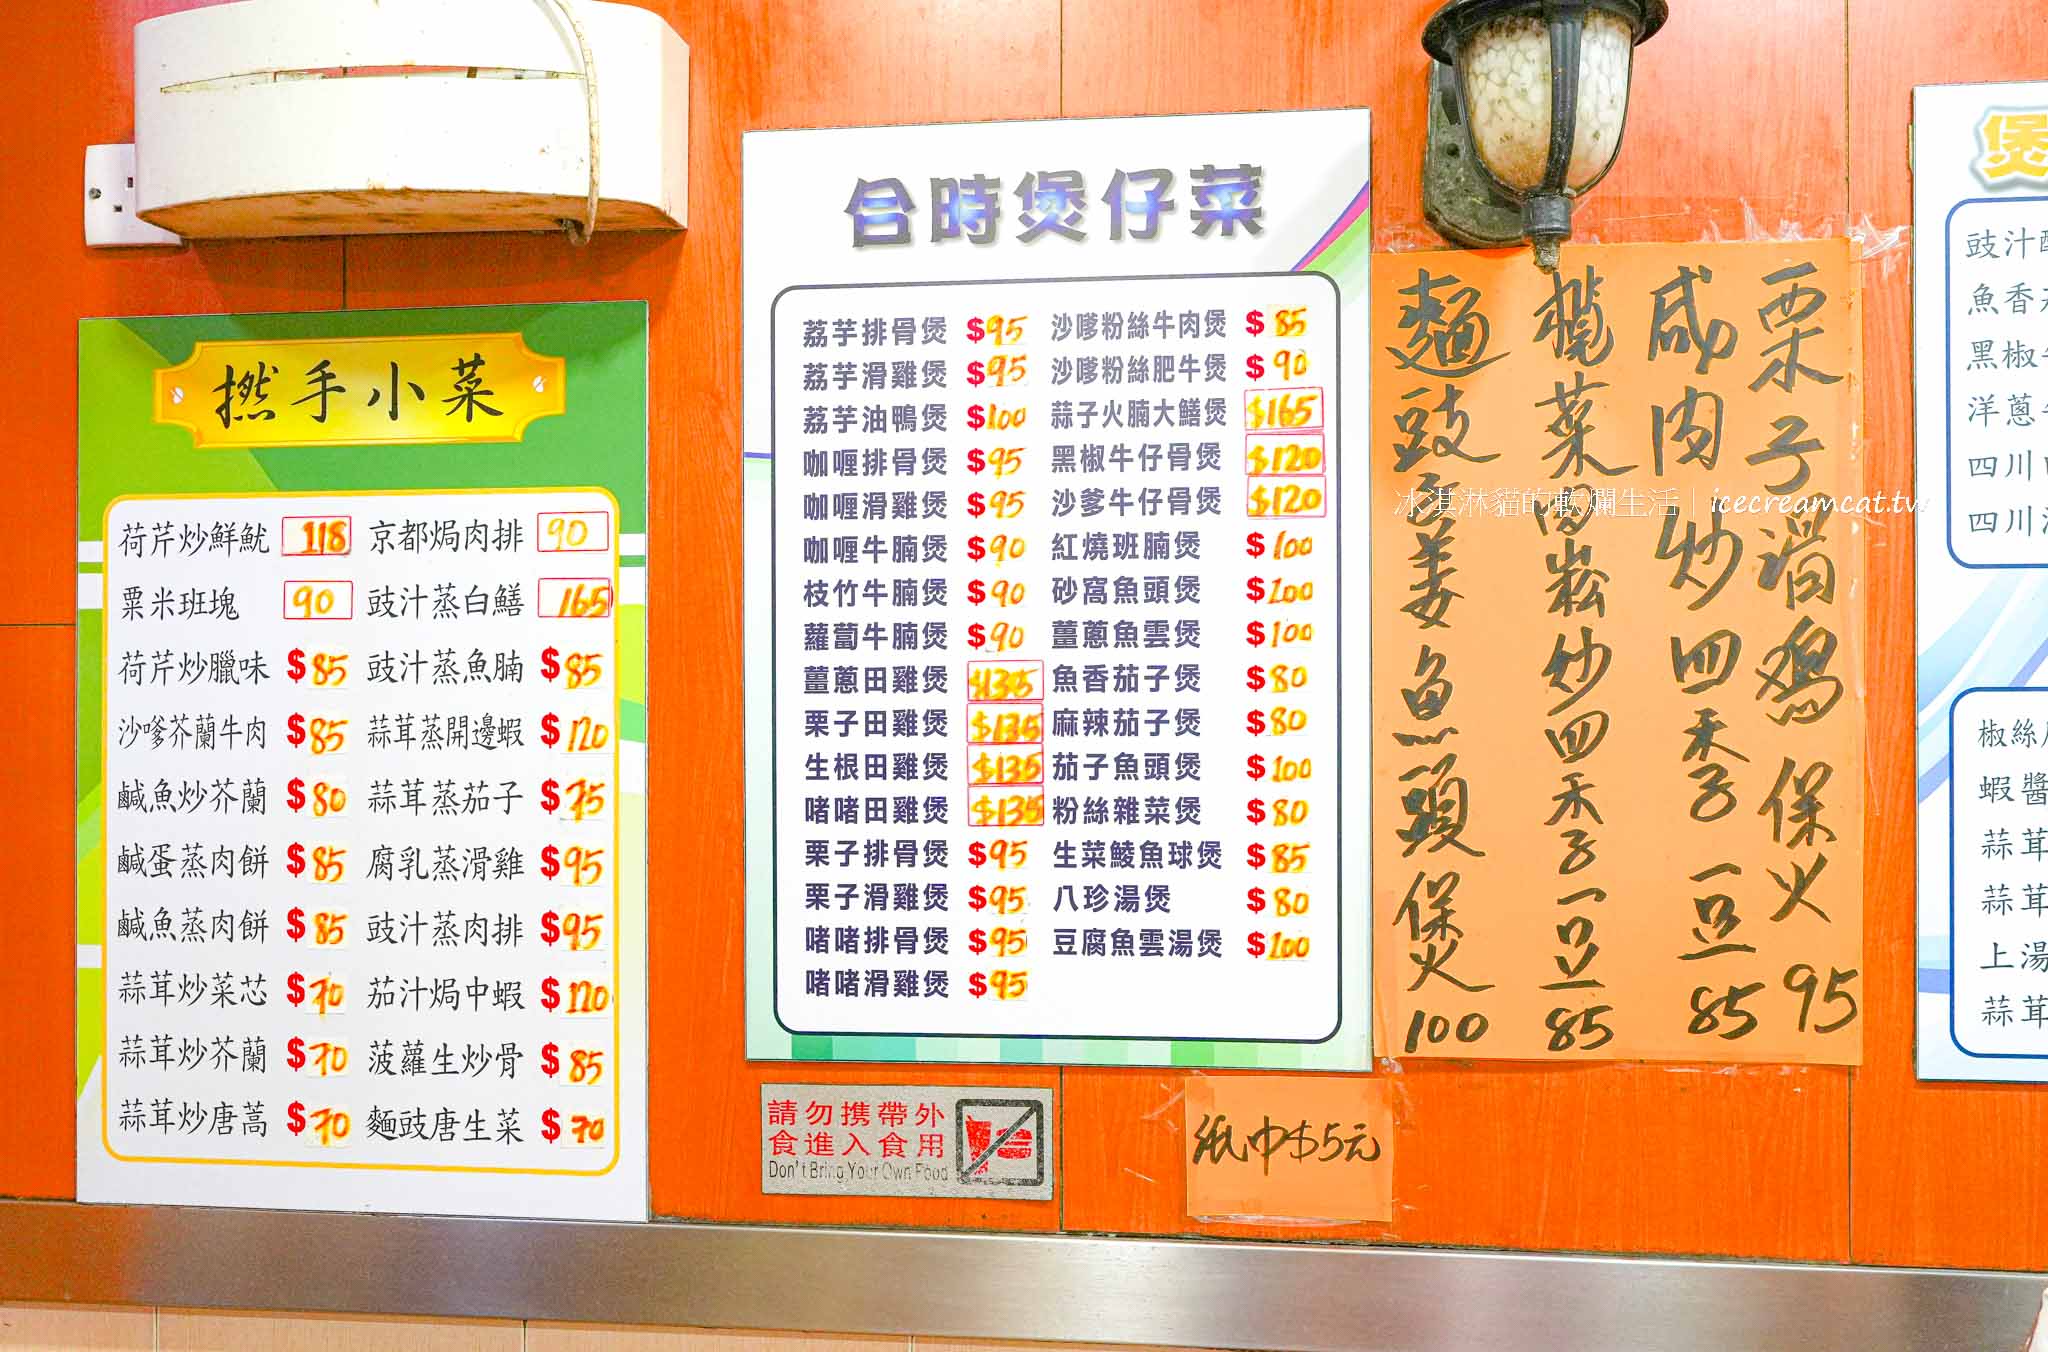 撚手小菜
荷芹炒鮮魷 118
粟米班塊 90
荷芹炒臘味 $85
沙嗲芥蘭牛肉 $85
鹹魚炒芥蘭 $80
鹹蛋蒸肉餅 $85
鹹魚蒸肉餅 $85
蒜茸炒菜芯 $70
蒜茸炒芥蘭 $70
蒜茸炒唐蒿 $70
京都焗肉排 90
豉汁蒸白鱔 165
豉汁蒸魚腩 $85
蒜茸蒸開邊蝦 $120
蒜茸蒸茄子 $75
腐乳蒸滑雞 $95
豉汁蒸肉排 $95
茄汁焗中蝦 $120
菠蘿生炒骨 $85
麵豉唐生菜 $70
合時煲仔菜
荔芋排骨煲 $95
荔芋滑雞煲 $95
荔芋油鴨煲 $100
咖喱排骨煲 $95
咖喱滑雞煲 $95
咖喱牛腩煲 $90
枝竹牛腩煲 $90
蘿蔔牛腩煲 $90
薑蔥田雞煲 $135
栗子田雞煲 $135
生根田雞煲 $135
啫啫田雞煲 $135
栗子排骨煲 $95
栗子滑雞煲 $95
啫啫排骨煲 $95
啫啫滑雞煲 $95
沙嗲粉絲牛肉煲 $85
沙嗲粉絲肥牛煲 $90
蒜子火腩大鱔煲 $165
黑椒牛仔骨煲 $120
沙爹牛仔骨煲 $120
紅燒班腩煲 $100
砂窩魚頭煲 $100
薑蔥魚雲煲 $100
魚香茄子煲 $80
麻辣茄子煲 $80
茄子魚頭煲 $100
粉絲雜菜煲 $80
生菜鯪魚球煲 $85
八珍湯煲 $80
豆腐魚雲湯煲 $100
栗子滑鷄保火 95
咸肉炒四季豆 85
欖菜肉崧炒四季豆 85
麵豉子姜魚頭煲 100
冰淇淋貓的軟爛生活 | icecreamcat.tw
請勿携帶外
食進入食用
Don't Bring Your Own Food
紙巾$5元
煲
豉汁
魚香
黑椒
洋蔥
四川
四川
椒絲
蝦醬
蒜茸
蒜茸
上湯
蒜茸